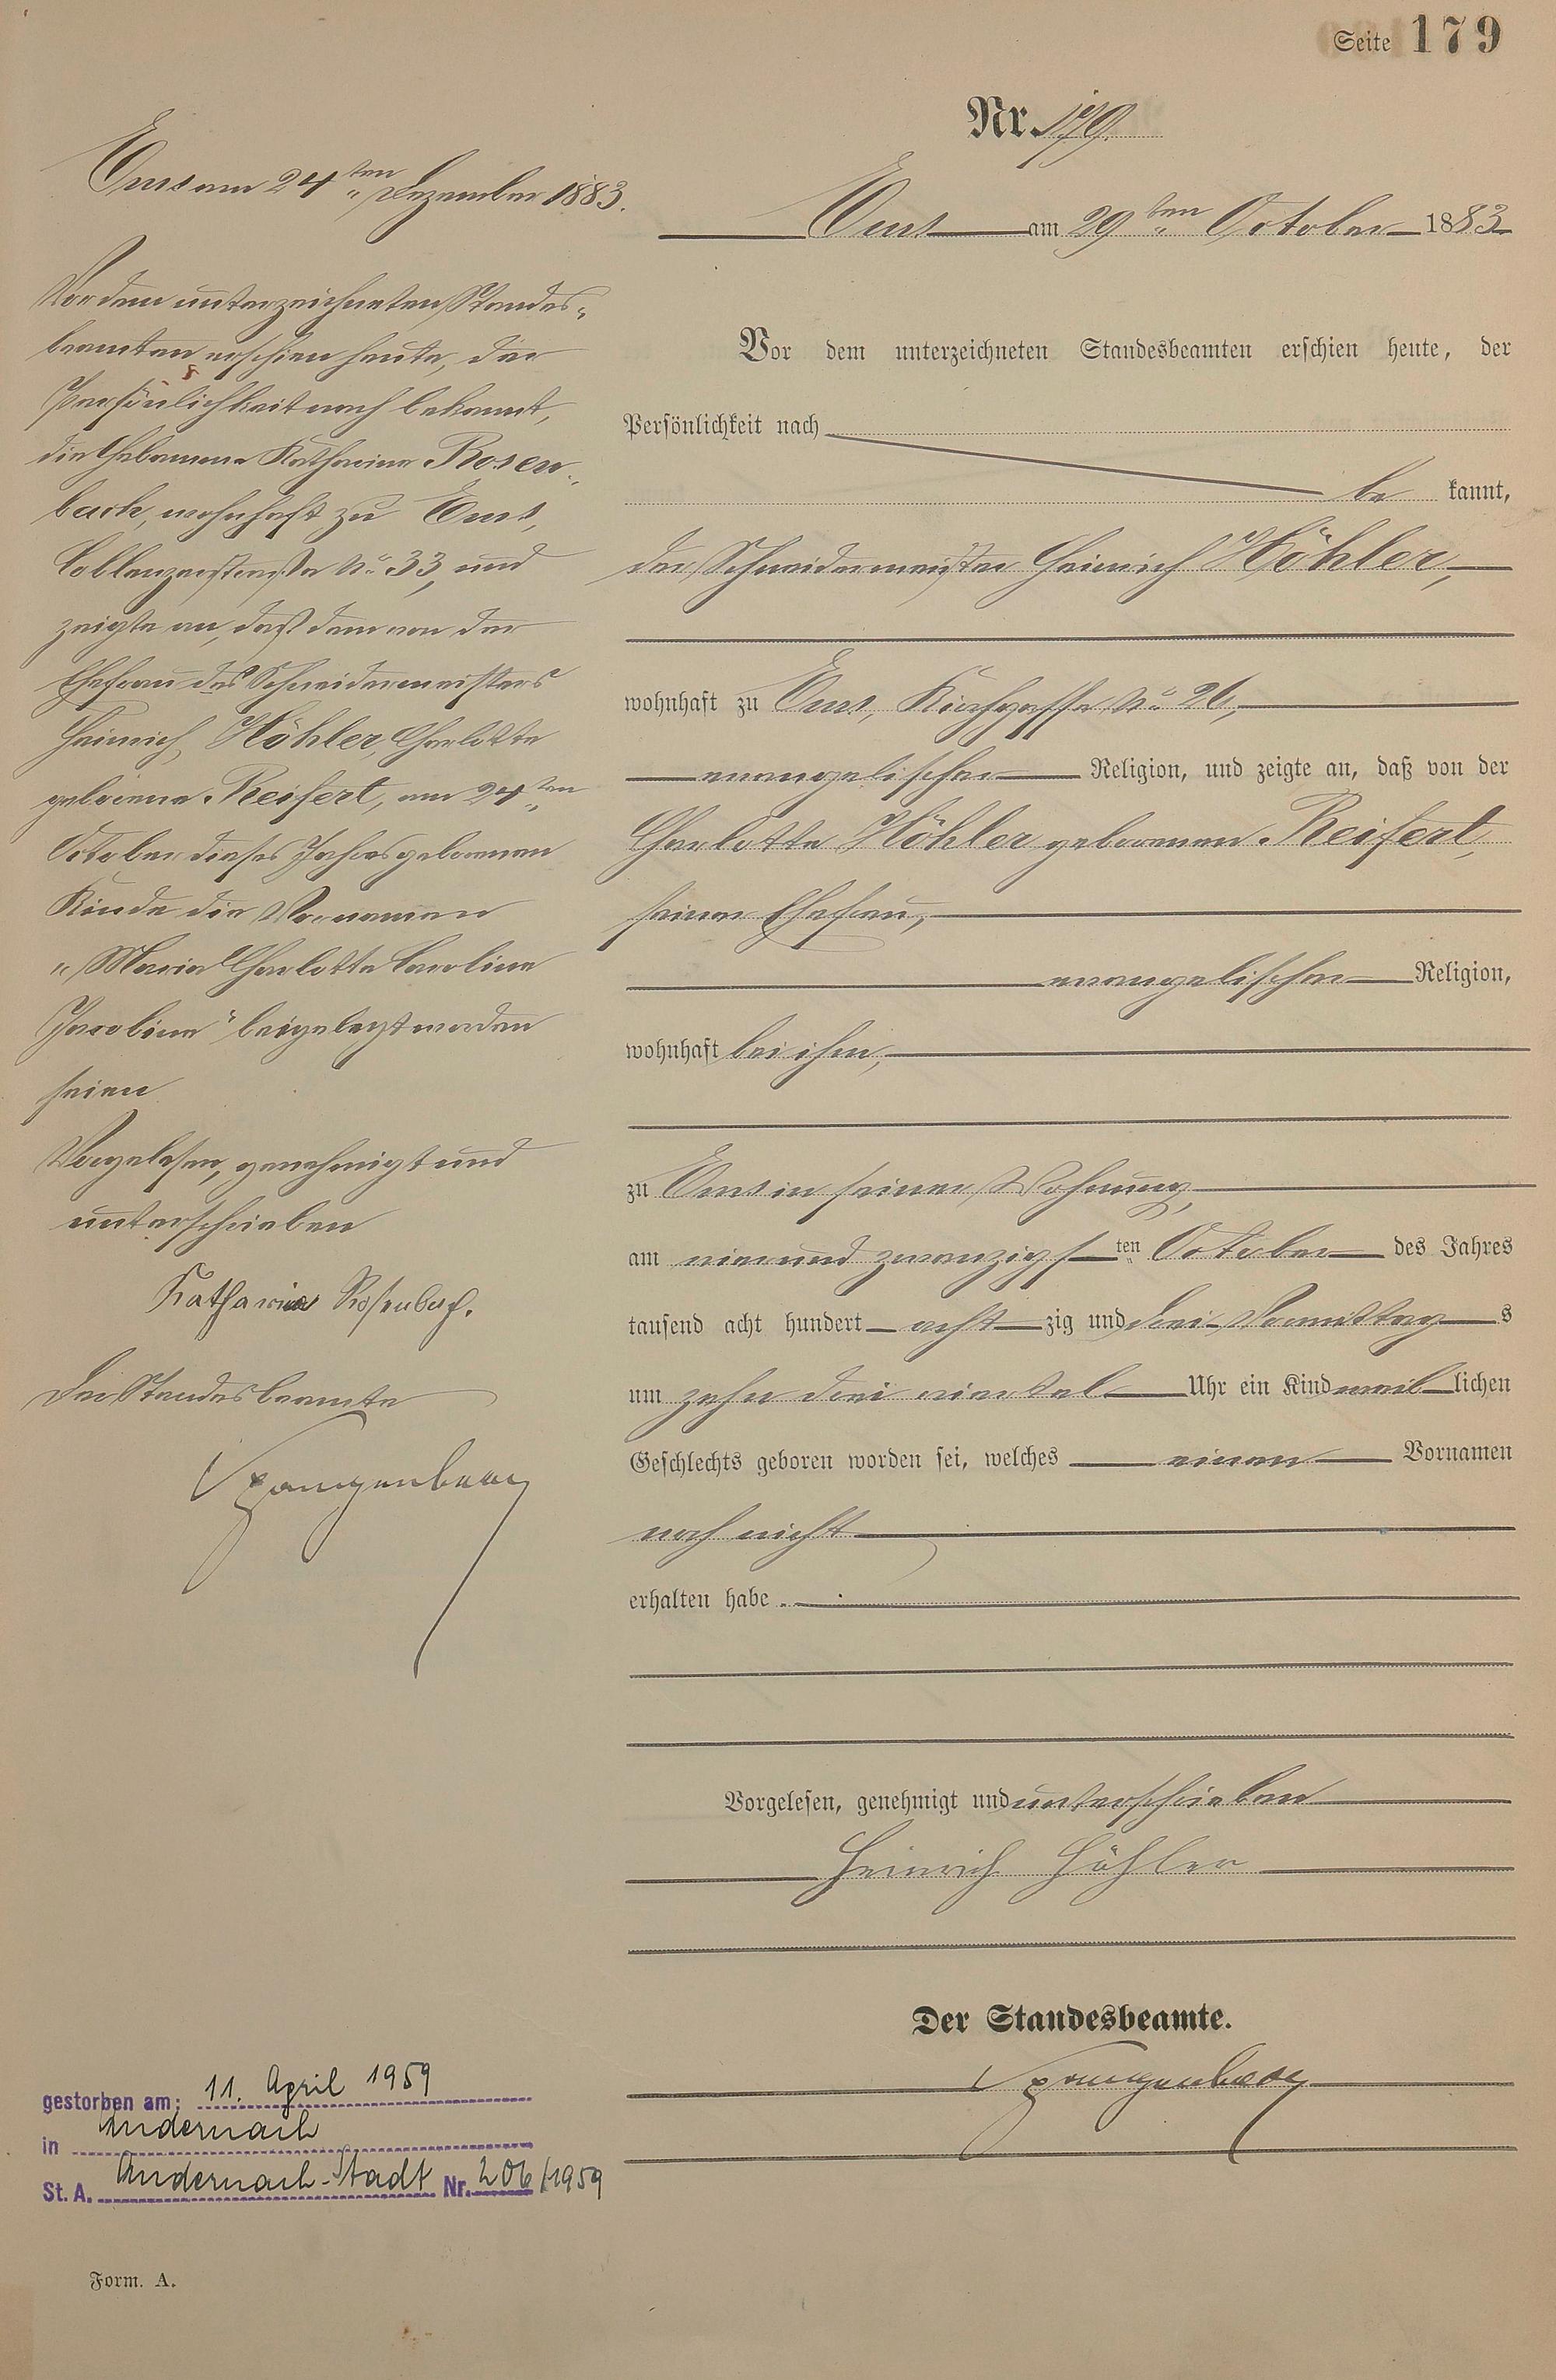 Seite 179
Nr. 179.
Ems am 29ten October 1883
Vor dem unterzeichneten Standesbeamten erschien heute, der
Persönlichkeit nach
be kannt,
der Schneidermeister Heinrich Höhler,
wohnhaft zu Ems, Kirchgasse No 26,
evangelischer Religion, und zeigte an, daß von der
Charlotte Höhler geborenen Reifert,
seiner Ehefrau,
evangelischer Religion,
wohnhaft bei ihm,
zu Ems in seiner Wohnung,
am vierundzwanzigsten October des Jahres
tausend acht hundert acht zig und drei Vormittags
um zehn drei viertel Uhr ein Kind weiblichen
Geschlechts geboren worden sei, welches einen Vornamen
noch nicht
erhalten habe.
Vorgelesen, genehmigt und unterschrieben
Heinrich Höhler
Der Standesbeamte.
Spangenberg
Ems am 24ten Dezember 1883.
Vor dem unterzeichneten Standes-
beamten erschien heute, der
Persönlichkeit nach bekannt,
die Hebamme Katharina Rosen-
bach, wohnhaft zu Ems,
Coblenzerstraße No 33, und
zeigte an, daß dem von der
Ehefrau des Schneidermeisters
Heinrich Höhler, Charlotte
geborene Reifert, am 24ten
October dieses Jahres geborenen
Kinde die Vornamen
"Maria Charlotte Caroline
Jacobine" beigelegt worden
seien
Vorgelesen, genehmigt und
unterschrieben
Katharina Rosenbach.
Der Standesbeamte
Spangenberg
gestorben am: 11. April 1959
in Andernach
St. A. Andernach-Stadt Nr. 206/1959
Form. A.